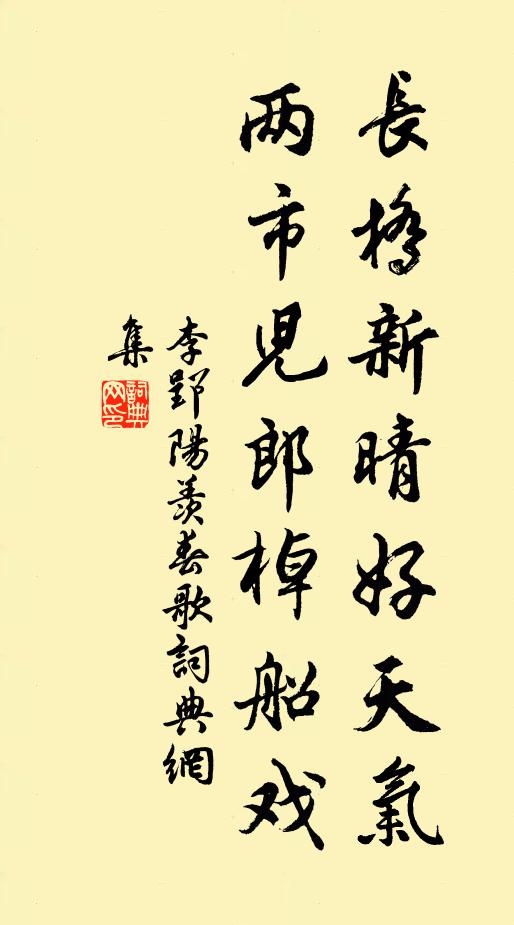 長橋新晴好天氣
两市児郎棹船戏
李郢陽羨春歌詞典網
集
詞典
文印